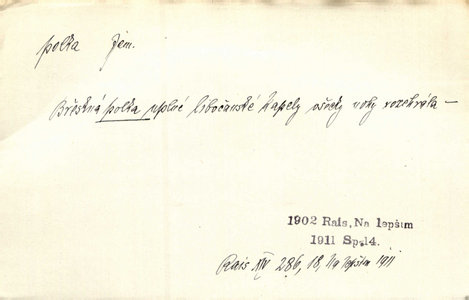 polka fem.
Břeskná polka uplné libočanské kapely všecky nohy rozehrála —
1902 Rais, Na lepšim
1911 Sp.14.
Rais XIV 286, 18, Na lepším 1911